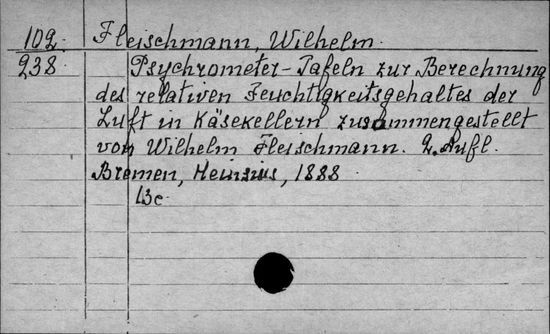 102. Fleischmann, Wilhelm.
238 Psychrometer-Tafeln zur Berechnung
des relativen Feuchtigkeitsgehaltes der
Luft in Käsekellern zusammengestellt
von Wilhelm Fleischmann. 2. Aufl.
Bremen, Heinsius, 1888